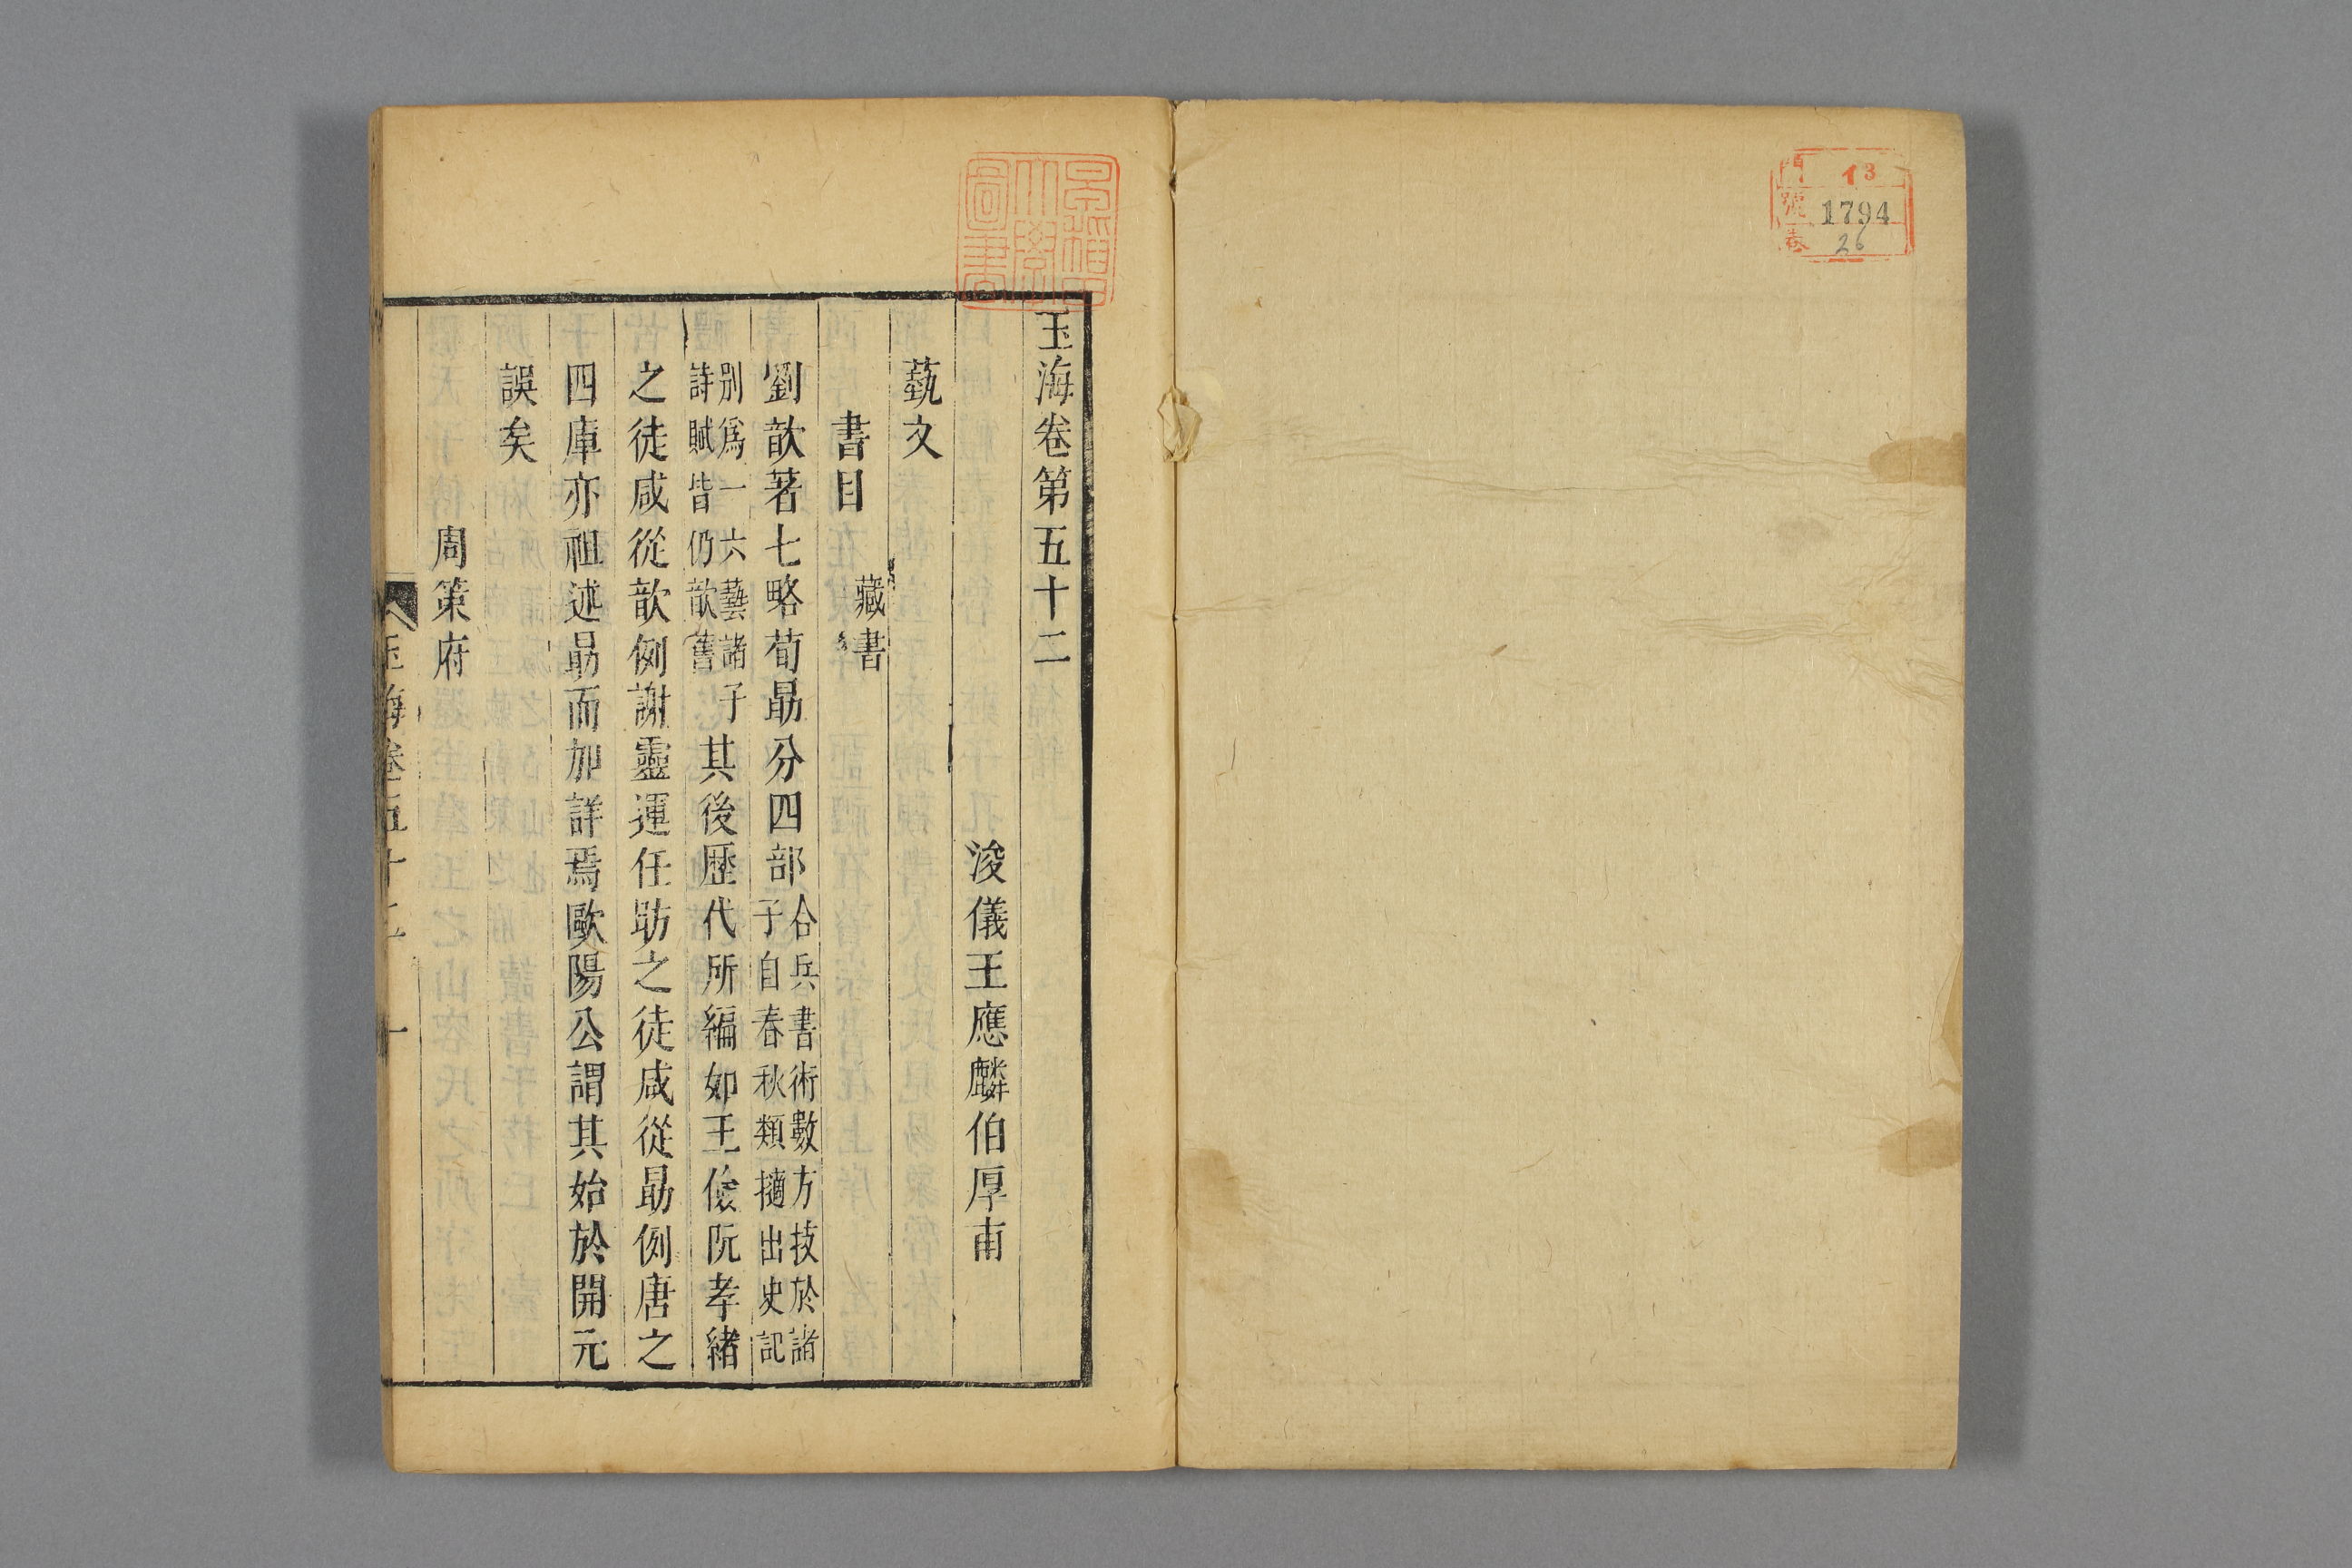 門 13
號 1794
卷 26
早稻田大學圖書
玉海卷第五十二
浚儀王應麟伯厚甫
藝文
書目 藏書
劉歆著七略荀勗分四部合兵書術數方技於諸子自春秋類擿出史記
別爲一六藝諸子詩賦皆仍歆舊其後歷代所編如王儉阮孝緒
之徒咸從歆例謝靈運任昉之徒咸從勗例唐之
四庫亦祖述勗而加詳焉歐陽公謂其始於開元
誤矣
周策府
玉海卷五十二 一